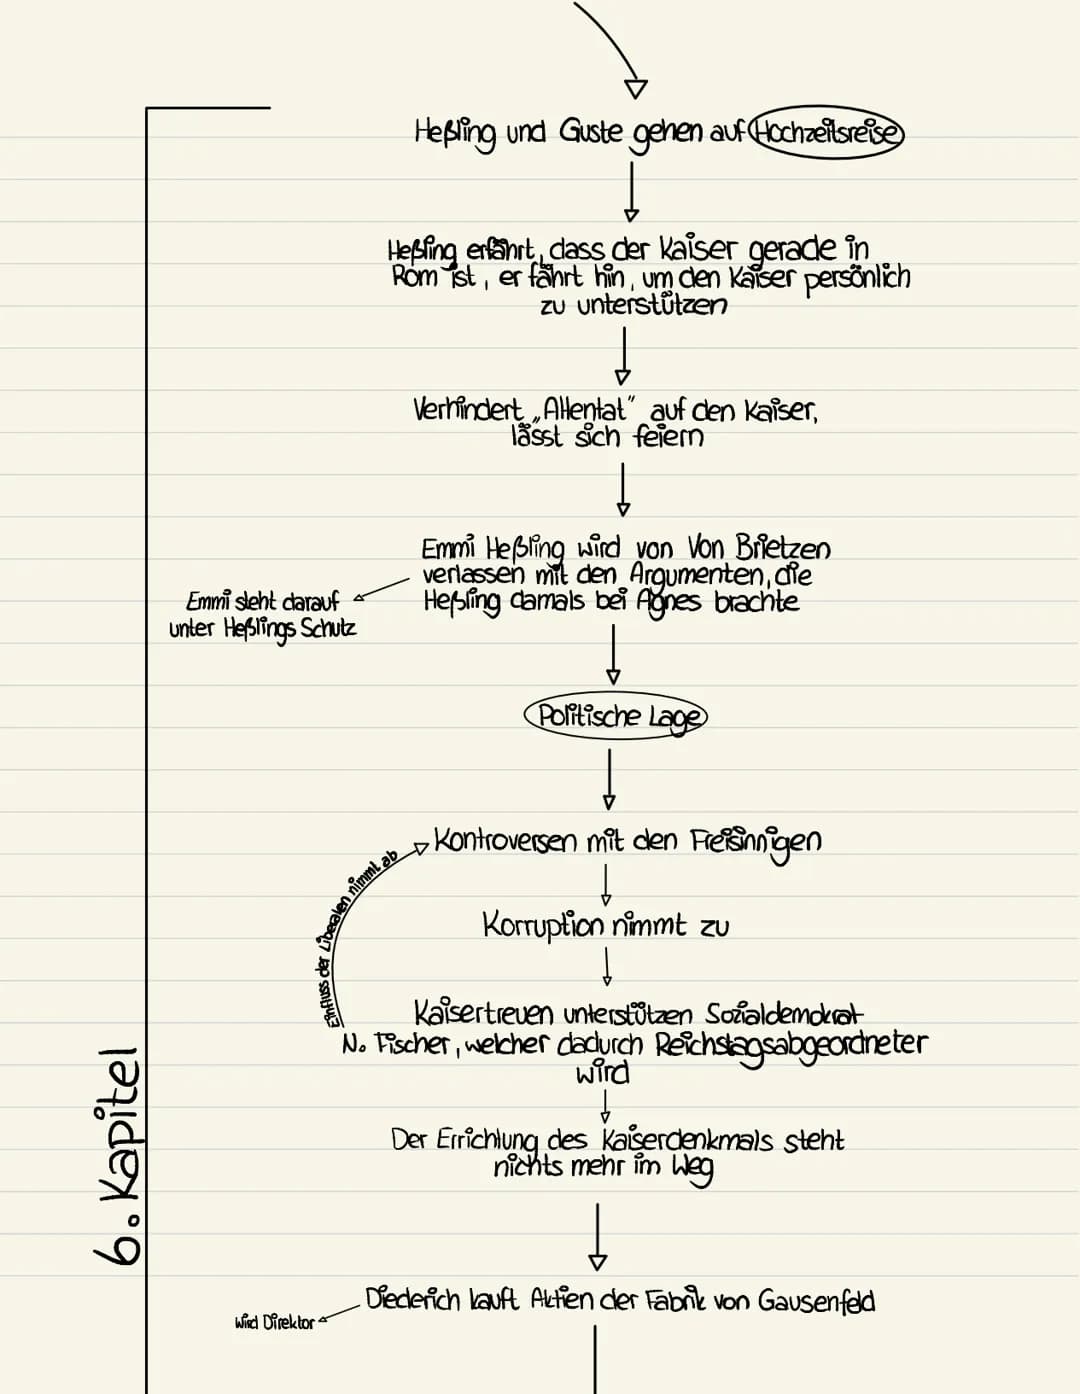 Heßling und Guste gehen auf Hochzeitsreise
Heßling erfährt, dass der Kaiser gerade in
Rom ist, er fährt hin, um den Kaiser persönlich
zu unterstützen
Verhindert „Attentat" auf den Kaiser,
lässt sich feiern
Emmi Heßling wird von Von Brietzen
verlassen mit den Argumenten, die
Heßling damals bei Agnes brachte
Emmi steht darauf
unter Heßlings Schutz
Politische Lage
Kontroversen mit den Freisinnigen
Einfluss der Liberalen nimmt ab
Korruption nimmt zu
Kaisertreuen unterstützen Sozialdemokrat
N. Fischer, welcher dadurch Reichstagsabgeordneter
wird
Der Errichtung des Kaiserdenkmals steht
nichts mehr im Weg
6. Kapitel
Diederich kauft Aktien der Fabrik von Gausenfeld
wird Direktor